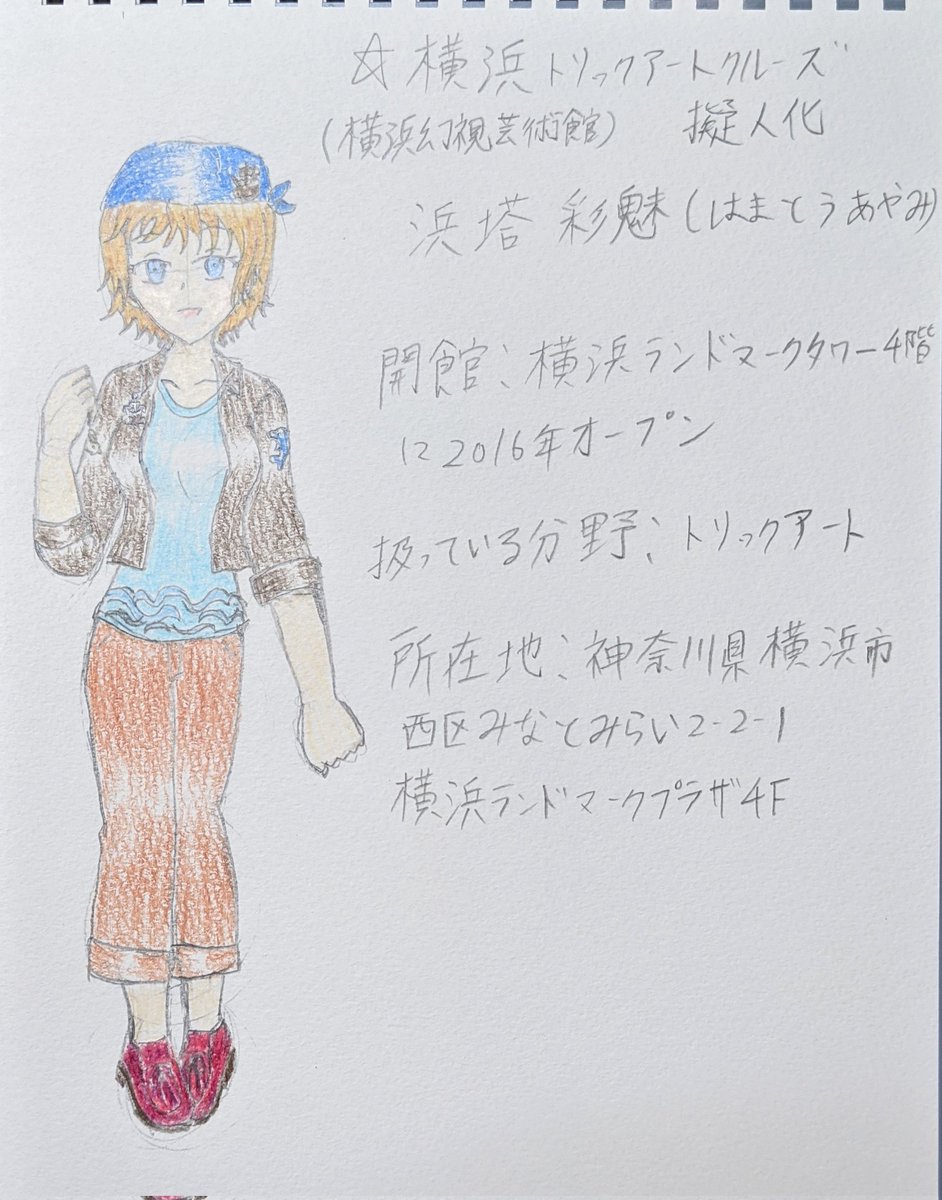 ☆横浜トリックアートクルーズ
(横浜幻視芸術館) 擬人化
浜塔 彩魅(はまとうあやみ)
開館:横浜ランドマークタワー4階
に2016年オープン
扱っている分野:トリックアート
所在地:神奈川県横浜市
西区みなとみらい2-2-1
横浜ランドマークプラザ4F